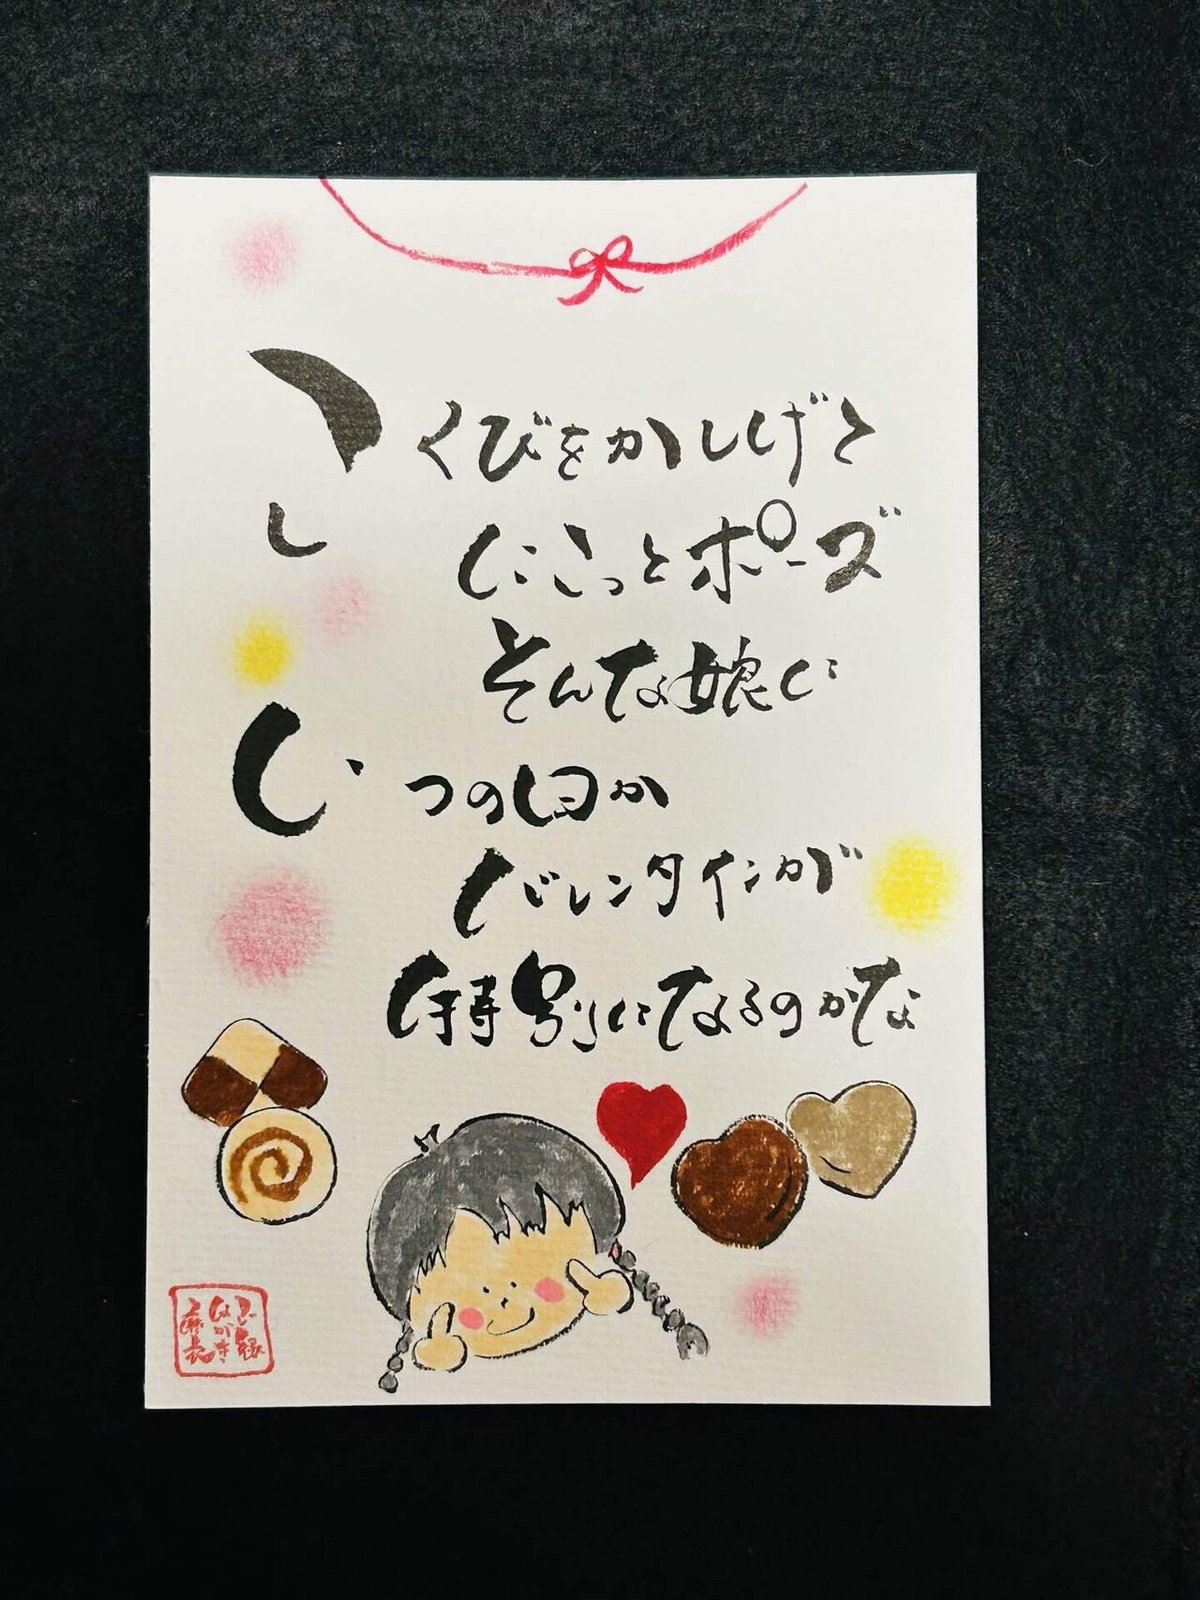 こくびをかしげて
にこっとポーズ
そんな娘に
いつの日か
バレンタインが
特別になるのかな
ご縁
はがき